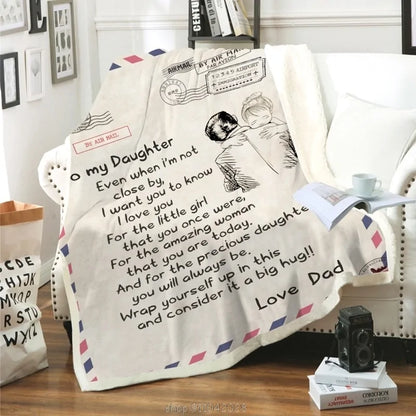 CENTURY
AIRMAIL
BY AIR MAIL
PAR AVION
12345 AIRPORT
IMMIGRATION
BY AIR MAIL
o my Daughter
Even when i'm not
close by,
I want you to know
I love you
For the little girl
that you once were,
For the amazing woman
that you are today.
And for the precious daughter
you will always be.
Wrap yourself up in this
and consider it a big hug!!
Love Dad